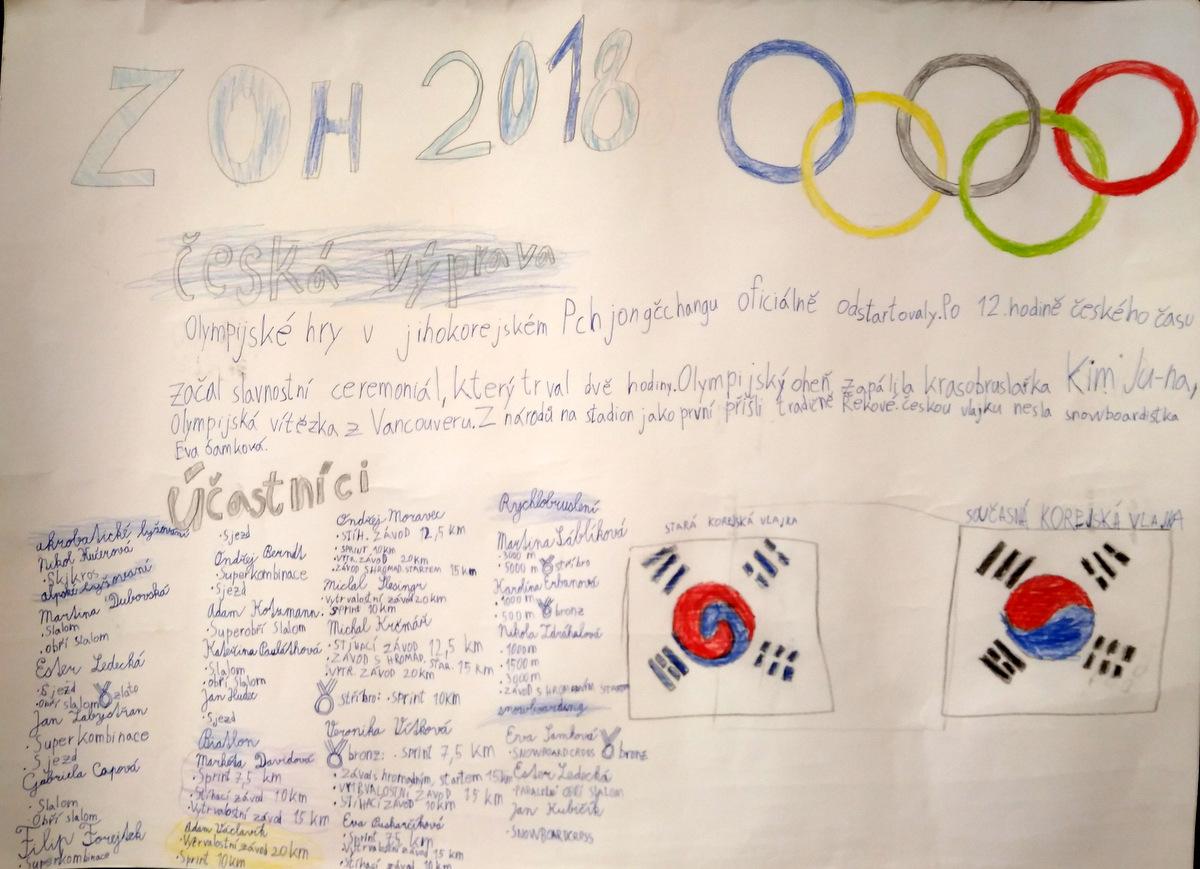 ZOH 2018
česká výprava
Olympijské hry v jihokorejském Pchjongčchangu oficiálně odstartovaly. Po 12. hodině českého času
začal slavnostní ceremoniál, který trval dvě hodiny. Olympijský oheň zapálila krasobruslařka Kim Ju-na,
Olympijská vítězka z Vancouveru. Z národů na stadion jako první přišli tradičně Řekové. českou vlajku nesla snowboardistka
Eva Samková.
Účastníci
akrobatické lyžování
Nikol Kučerová
· Skikros
alpské lyžování
Martina Dubovská
· Slalom
· obří slalom
Ester Ledecká
· Sjezd
· obří slalom zlato
Jan Zabystřan
· Super kombinace
· Sjezd
Gabriela Capová
· Slalom
· Obří slalom
Filip Forejtek
· Superkombinace
· Sjezd
Ondřej Berndt
· Superkombinace
· Sjezd
Adam Kotzmann:
· Superobří slalom
Kateřina Pauláthová
· Slalom
· obří slalom
Jan Hudec
· Sjezd
Biatlon
Markéta Davidová
· Sprint 7,5 km
· Stíhací závod 10 km
· Vytrvalostní závod 15 km
Adam Václavík
· Vytrvalostní závod 20 km
· Sprint 10 km
Ondřej Moravec
· STÍH. ZÁVOD 12,5 km
· SPRINT 10 km
· VYTR. ZÁVOD 20 km
· ZÁVOD S HROMAD. STARTEM 15 km
Michal Šlesingr
· Vytrvalostní závod 20 km
· Sprint 10 km
Michal Krčmář
· STÍHACÍ ZÁVOD 12,5 km
· ZÁVOD S HROMAD. STAR. 15 km
· VYTR. ZÁVOD 20 km
stříbro: · Sprint 10 km
Veronika Vítková
bronz: · sprint 7,5 km
· závod s hromadným startem
· VYTRVALOSTNÍ ZÁVOD 15 km
· STÍHACÍ ZÁVOD 10 km
Eva Puskarčíková
· Sprint 7,5 km
· Vytrvalostní závod 15 km
· Stíhací závod 10 km
Rychlobruslení
Martina Sáblíková
· 3000 m
· 5000 m stříbro
Karolína Erbanová
· 1000 m
· 500 m bronz
Nikola Zdráhalová
· 1000 m
· 1500 m
· 3000 m
· ZÁVOD S HROMADNÝM STARTEM
snowboarding
Eva Samková
· SNOWBOARDCROSS bronz
Ester Ledecká
· PARALELNÍ OBŘÍ SLALOM
Jan Kubičík
· SNOWBOARDCROSS
STARÁ KOREJSKÁ VLAJKA
SOUČASNÁ KOREJSKÁ VLAJKA